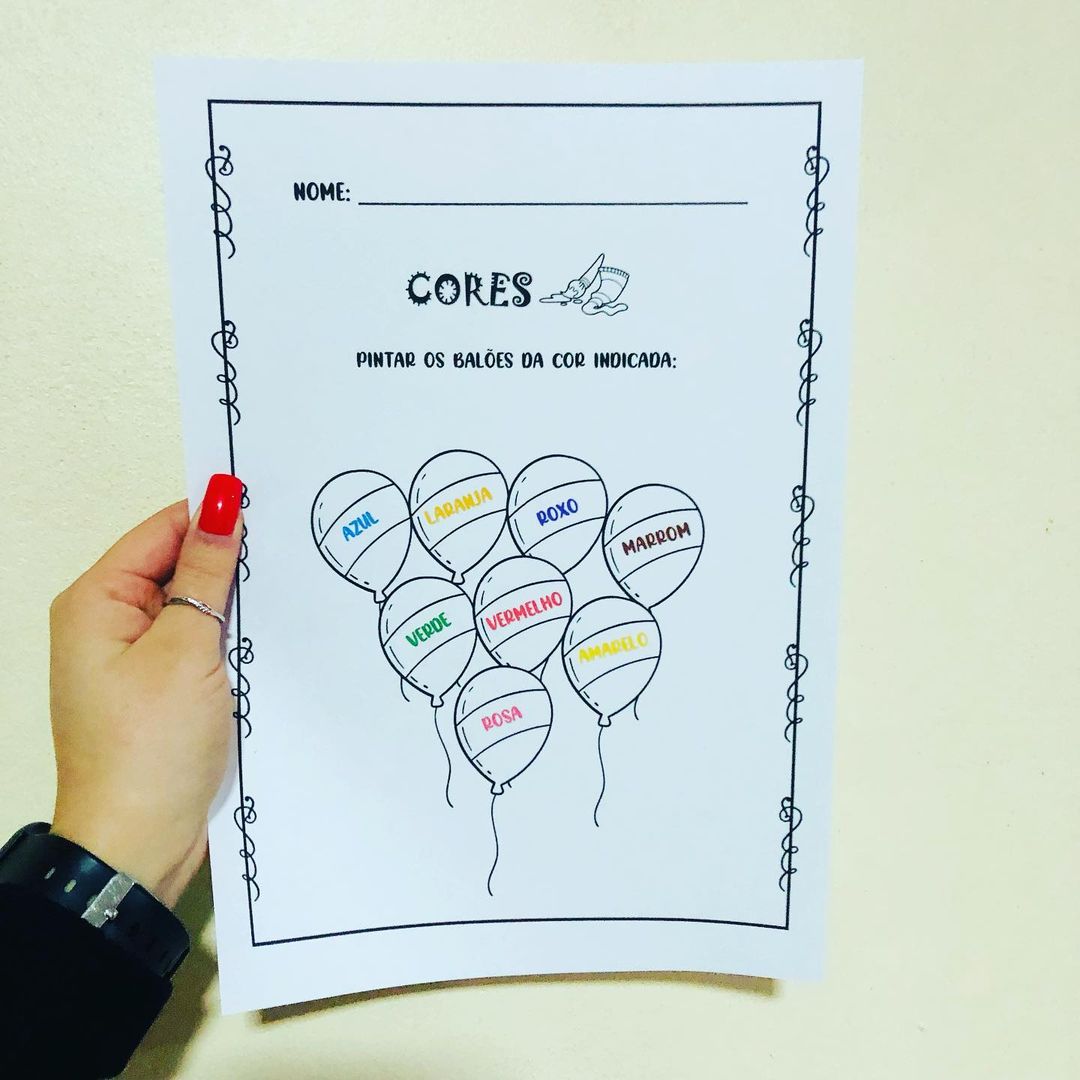 NOME:
CORES
PINTAR OS BALÕES DA COR INDICADA:
AZUL
LARANJA
ROXO
MARROM
VERDE
VERMELHO
AMARELO
ROSA